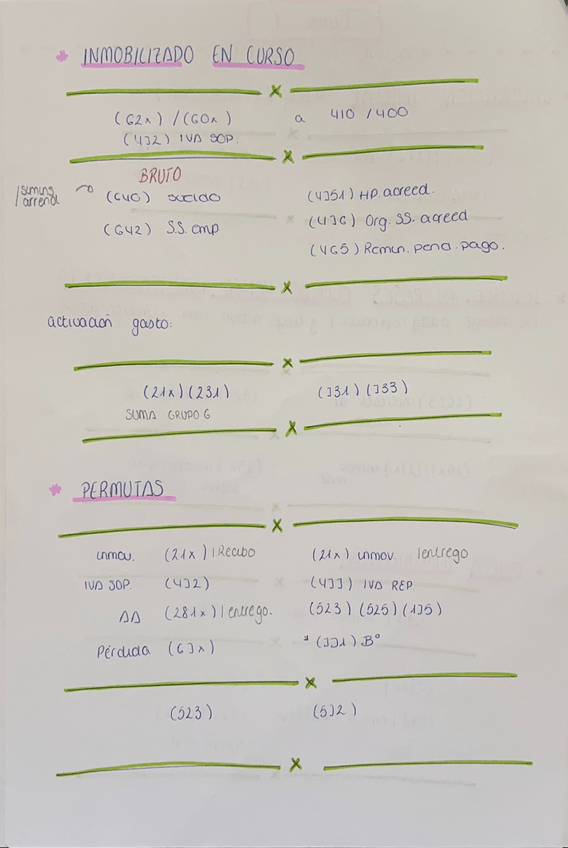 * INMOBILIZADO EN CURSO
(62x) / (60x) a 410 / 400
(472) IVA SOP.
BRUTO
(640) sueldo (4751) HP. acreed.
(642) S.S. emp (476) Org. SS. acreed
(465) Remun. pend. pago.
activación gasto:
(21x) (231) (731) (733)
SUMA GRUPO 6
* PERMUTAS
inmov. (21x) | Recibo (21x) inmov. | entrego
IVA SOP. (472) (477) IVA REP.
AA (281x) | entrego. (523) (525) (175)
Pérdida (67x) * (771) Bº
(523) (572)